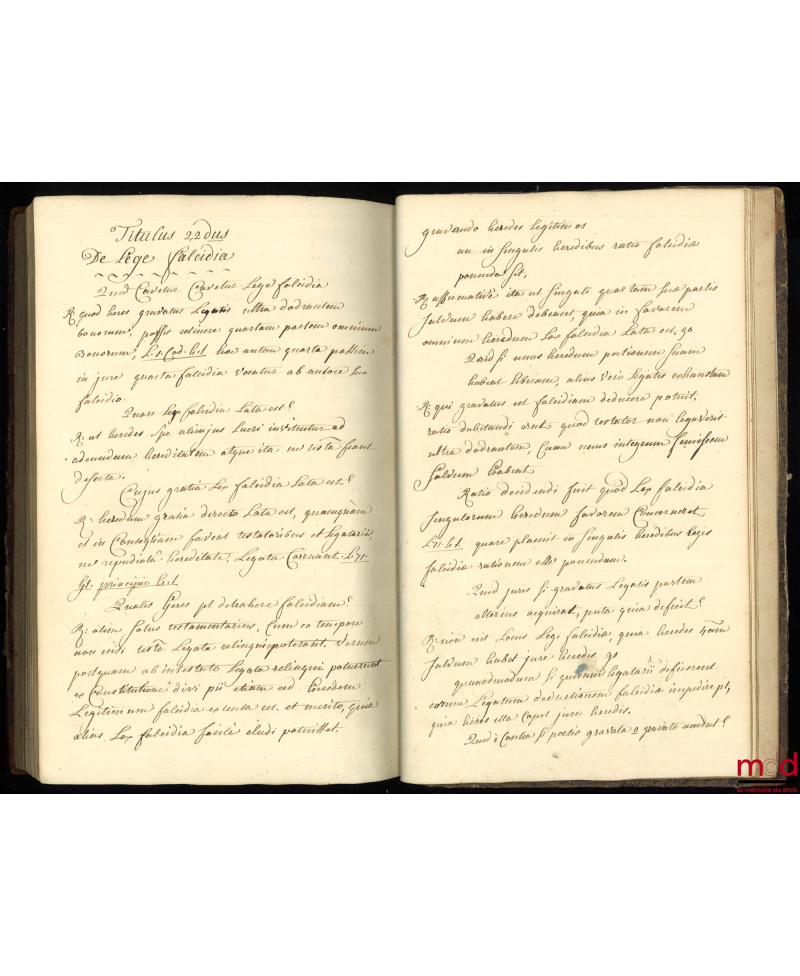 Titulus 22dus
De Lege falcidia
Quid Cavetur Cavetur Lege falcidia
R: quod heres gravatus Legatis ultra dodrantem
bonorum, possit retinere quartam partem omnium
bonorum, L. 1. Cod. h. t. hæc autem quarta passim
in jure quarta falcidia vocatur ab autore suo
falcidio.
Quare Lex falcidia Lata est?
R: ut heredes spe alicujus Lucri invitentur ad
adeundam hereditatem atque ita ne testa fiant
deserta.
Cujus gratia Lex falcidia Lata est?
R: heredum gratia directo Lata est, quamquam
et in Consequtiam faveat testatoribus et Legatariis,
ne repudiata hereditate, Legata Corruant. L. 71.
princípio h. t.
Qualis heres pt detrahere falcidiam?
R: olim solus testamentarius, Cum eo tempore
non nisi testo Legata relinqui poterant. Verum
postquam ab intestato Legata relinqui potuerunt
ex Constitutione divi pii etiam ad heredem
Legitimum falcidia extensa est. et merito, quia
alias Lex falcidia facile eludi potuisset.
gravando heredes Legitimos
an in singulis heredibus ratio falcidiæ
ponenda sit,
R: affirmativè ita ut singuli quartam suæ partis
salvam habere debeant, quia in favorem
omnium heredum Lex falcidia Lata est, go
Quid si unus heredum portionem suam
habeat liberam, alius vero Legatis exhaustam
R: qui gravatus est falcidiam deducere poterit,
ratio dubitandi erat quod testator non legaverit
ultra dodrantem, Cum unus integrum semissem
salvum habeat
Ratio decidendi fuit quod Lex falcidia
singulorum heredum favorem Concernerat
L. 71. h. t. quare placuit in singulis heredibus Legis
falcidiæ rationem esse ponendam.
Quid juris si gravatus Legatis partem
alterius acquirat, puta quia deficit?
R: non erit Locus Legi falcidiæ, quia heredes
salvam habet jure heredis, go
quemadmodum si quidam legatarii deficerent
eorum Legatum deductionem falcidiæ impedire pt,
quia heres illa Capit jure heredis.
Quid è Contra si portio gravata